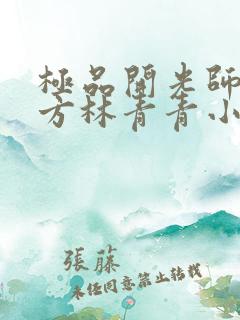 極品開光師
方林青青小
張藤
未经同意禁止转载